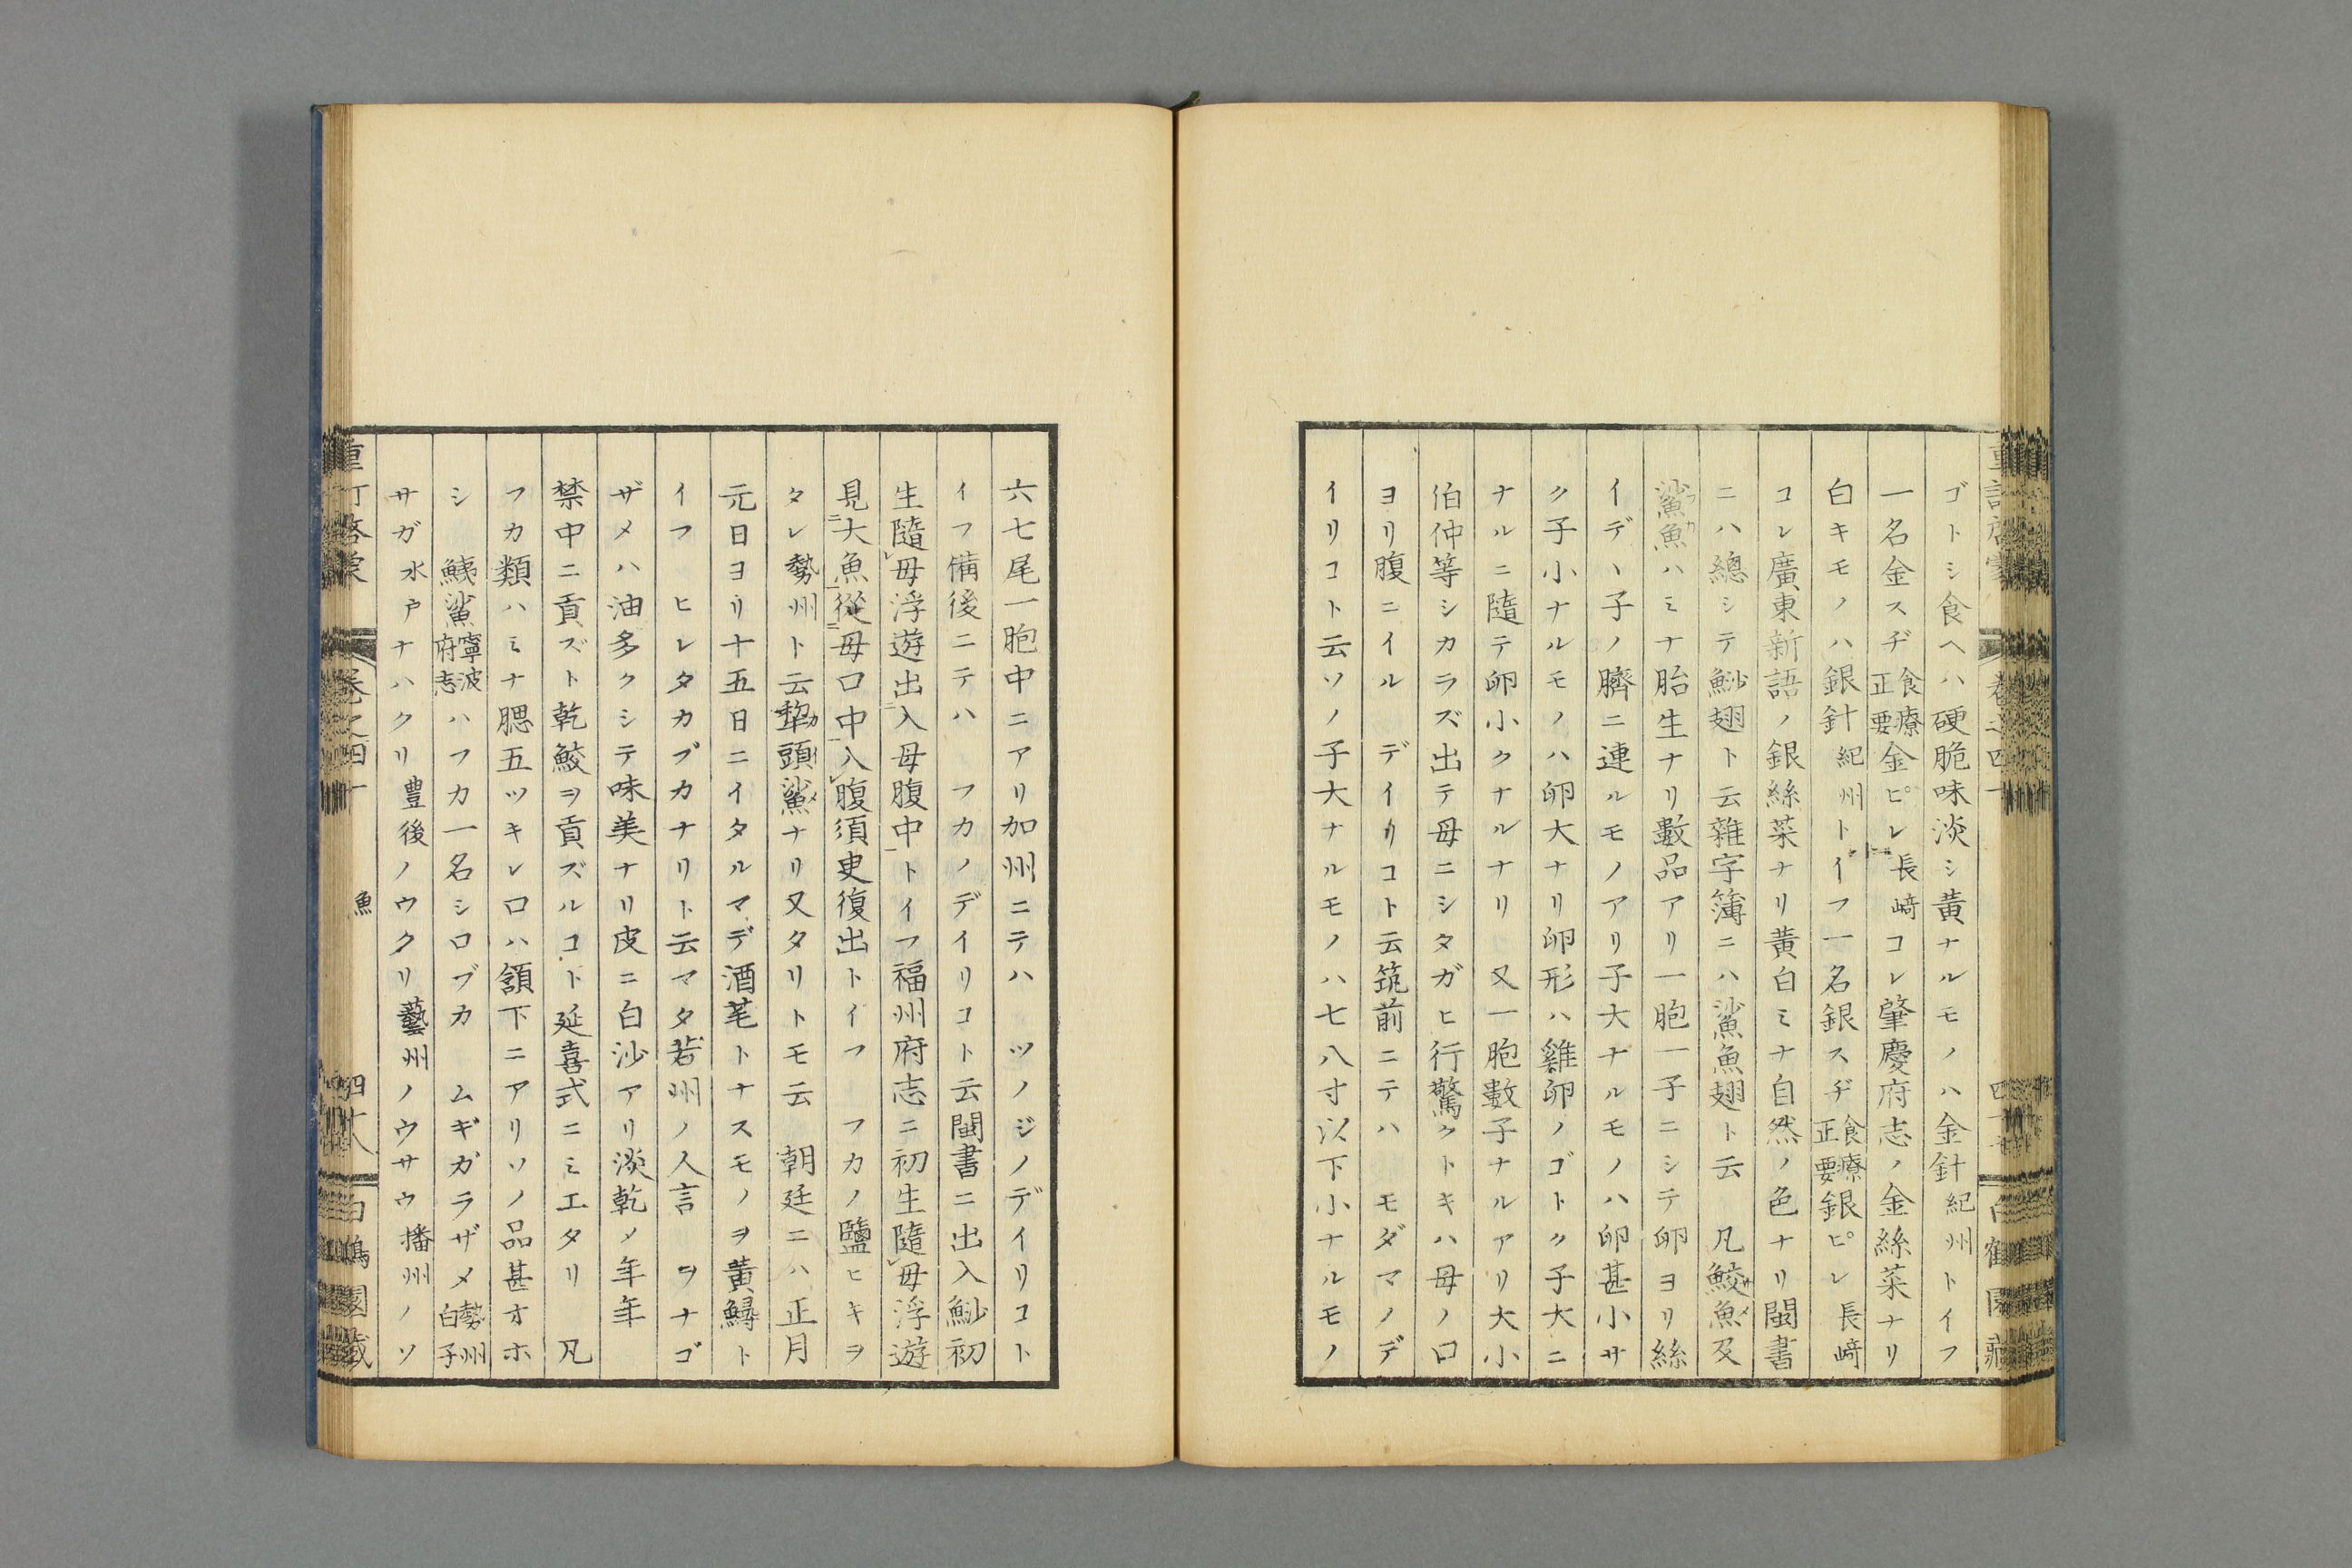 ゴトシ食ヘハ硬脆味淡シ黄ナルモノハ金針紀州トイフ
一名金スヂ食療正要金ピレ長﨑コレ肇慶府志ノ金絲菜ナリ
白キモノハ銀針紀州トイフ一名銀スヂ食療正要銀ピレ長﨑
コレ廣東新語ノ銀絲菜ナリ黄白ミナ自然ノ色ナリ閩書
ニハ總シテ魦翅ト云雜字簿ニハ鯊魚翅ト云 凡鮫魚及
鯊魚ハミナ胎生ナリ數品アリ一胞一子ニシテ卵ヨリ絲
イデヽ子ノ臍ニ連ルモノアリ子大ナルモノハ卵甚小サ
ク子小ナルモノハ卵大ナリ卵形ハ雞卵ノゴトク子大ニ
ナルニ隨テ卵小クナルナリ又一胞數子ナルアリ大小
伯仲等シカラズ出テ母ニシタガヒ行驚クトキハ母ノ口
ヨリ腹ニイル デイリコト云筑前ニテハ モダマノデ
イリコト云ソノ子大ナルモノハ七八寸以下小ナルモノ
六七尾一胞中ニアリ加州ニテハ ツノジノデイリコト
イフ備後ニテハ フカノデイリコト云閩書ニ出入魦初
生隨母浮遊出入母腹中トイフ福州府志ニ初生隨母浮遊
見大魚從母口中入腹須臾復出トイフ フカノ鹽ヒキヲ
タレ勢州ト云犂頭鯊ナリ又タリトモ云 朝廷ニハ正月
元日ヨリ十五日ニイタルマデ酒芼トナスモノヲ黄鱘ト
イフ ヒレタカブカナリト云マタ若州ノ人言 ヲナゴ
ザメハ油多クシテ味美ナリ皮ニ白沙アリ淡乾ノ年年
禁中ニ貢ズト乾鮫ヲ貢ズルコト延喜式ニミエタリ 凡
フカ類ハミナ腮五ツキレ口ハ頷下ニアリソノ品甚オホ
シ 鮧鯊寧波府志ハフカ一名シロブカ ムギガラザメ勢州白子
サガ水戸ナハクリ豊後ノウクリ藝州ノウサウ播州ノソ
重訂啓蒙 卷之四十 魚 白鶴園藏